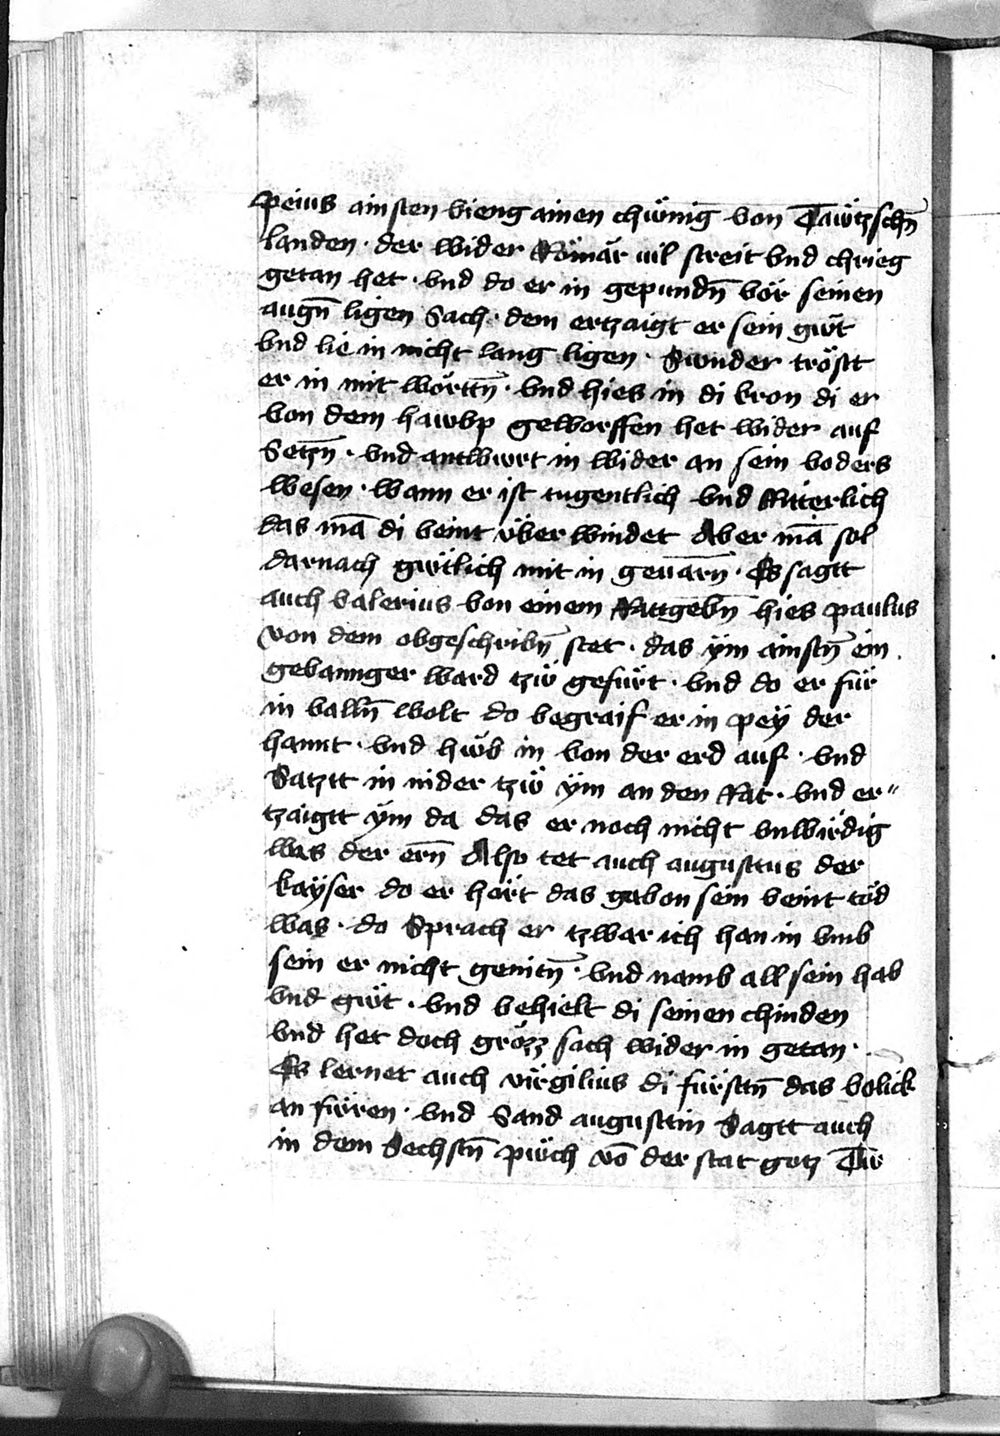 peius ainsten vieng ainen chünig von Tawtzschn̄
landen · der wider Römär vil streit vnd chrieg
getan het · vnd do er in gepundn̄ vör seinen
augn̄ ligen Sach · dem ertzaigt er sein güt
vnd lie in nicht lang ligen · Sunder tröstt
er in mit wörttn̄ · vnd hies in di kron di er
von dem hawbp geworffen het wider auf
Setzn̄ · vnd antwurt in wider an sein voders
wesen · wann er ist tugentlich vnd Ritterlich
das mā di veint über windet Aber mā sol
darnach gütlich mit in geuarn̄ · Es sagtt
auch valerius von einem Rattgebn̄ hies paulus
von dem obgeschribn̄ stet · das ÿm ainstn̄ ein
gevannger ward tzü gefürt · vnd do er für
in valln̄ wolt do begraif er in peÿ der
hannt · vnd hüb in von der erd auf · vnd
Satztt in nider tzü ÿm an den Rat · vnd er⸗
tzaigtt ÿm da das er noch nicht vnwirdig
was der ern̄ Also tet auch augusttus der
kaÿser do er hört das gabon sein veint töd
was · do Sprach er tzwar ich han in vmb
sein er nicht genitn̄ · vnd namb all sein hab
vnd güt · vnd behielt di seinen chinden
vnd het doch grözz sach wider in getan ·
Es lernet auch virgilius di fürsttn̄ das volick
an füren · vnd Sand augusttin Sagtt auch
in dem Sechstn̄ püch vō der stat gotz Tü